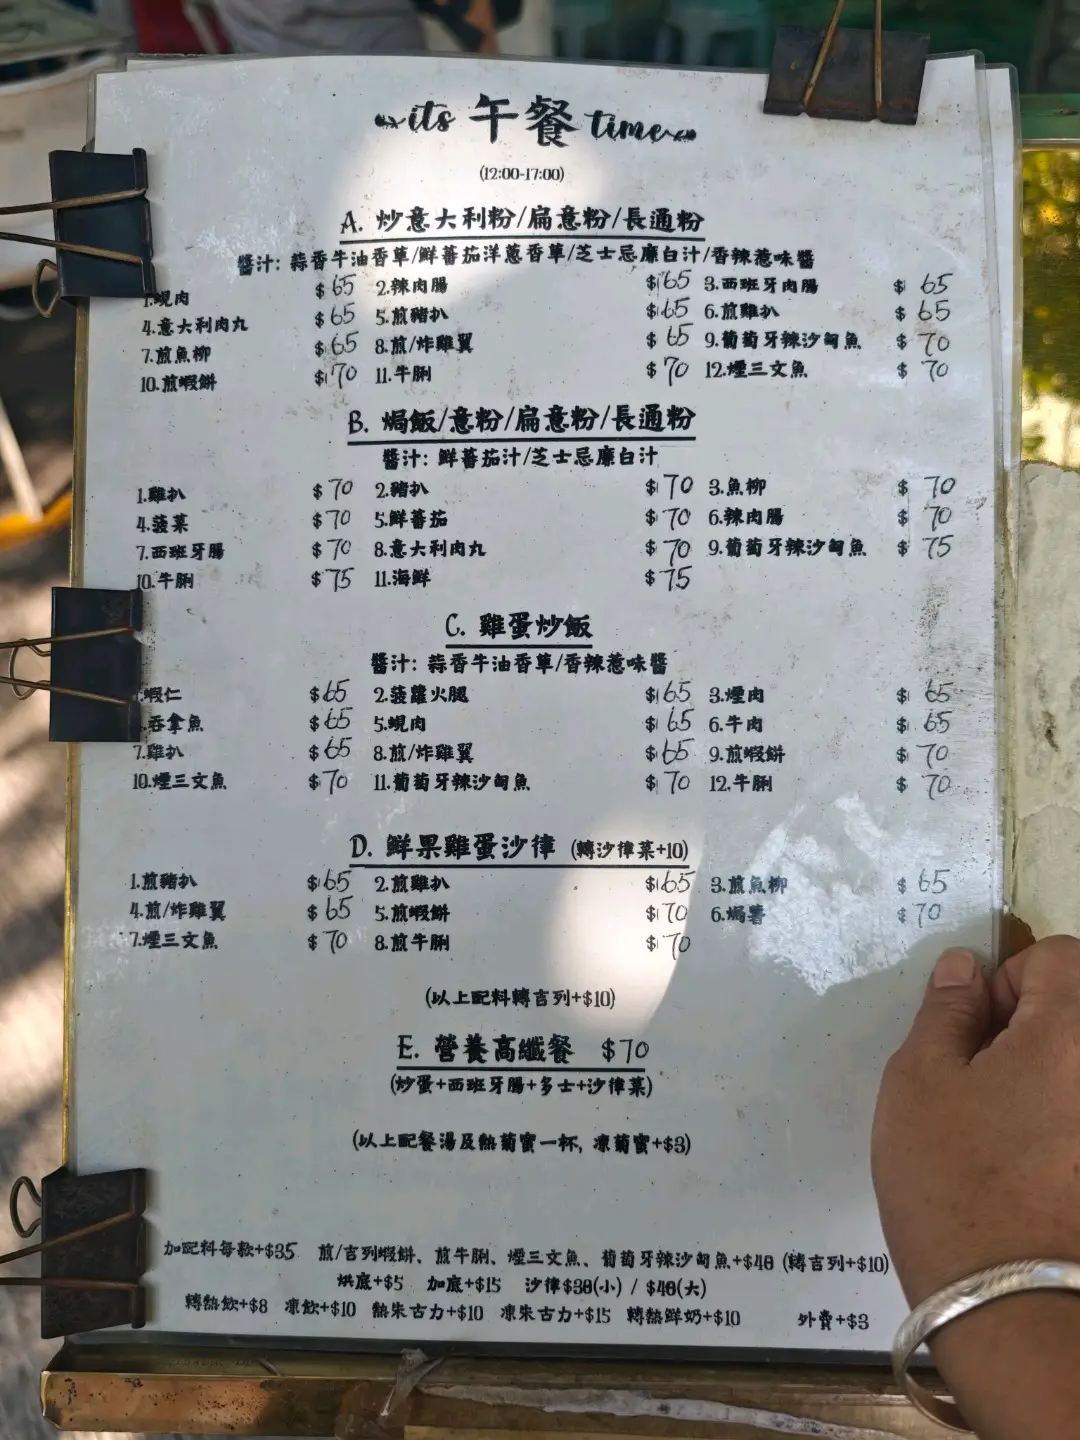 its 午餐 time
(12:00-17:00)
A. 炒意大利粉/扁意粉/長通粉
醬汁: 蒜香牛油香草/鮮蕃茄洋蔥香草/芝士忌廉白汁/香辣惹味醬
1.蜆肉 $65 2.辣肉腸 $65 3.西班牙肉腸 $65
4.意大利肉丸 $65 5.煎豬扒 $65 6.煎雞扒 $65
7.煎魚柳 $65 8.煎/炸雞翼 $65 9.葡萄牙辣沙甸魚 $70
10.煎蝦餅 $70 11.牛脷 $70 12.煙三文魚 $70
B. 焗飯/意粉/扁意粉/長通粉
醬汁: 鮮蕃茄汁/芝士忌廉白汁
1.雞扒 $70 2.豬扒 $70 3.魚柳 $70
4.菠菜 $70 5.鮮蕃茄 $70 6.辣肉腸 $70
7.西班牙腸 $70 8.意大利肉丸 $70 9.葡萄牙辣沙甸魚 $75
10.牛脷 $75 11.海鮮 $75
C. 雞蛋炒飯
醬汁: 蒜香牛油香草/香辣惹味醬
蝦仁 $65 2.菠蘿火腿 $65 3.煙肉 $65
吞拿魚 $65 5.蜆肉 $65 6.牛肉 $65
7.雞扒 $65 8.煎/炸雞翼 $65 9.煎蝦餅 $70
10.煙三文魚 $70 11.葡萄牙辣沙甸魚 $70 12.牛脷 $70
D. 鮮果雞蛋沙律 (轉沙律菜+10)
1.煎豬扒 $65 2.煎雞扒 $65 3.煎魚柳 $65
4.煎/炸雞翼 $65 5.煎蝦餅 $70 6.焗薯 $70
7.煙三文魚 $70 8.煎牛脷 $70
(以上配料轉吉列+$10)
E. 營養高纖餐 $70
(炒蛋+西班牙腸+多士+沙律菜)
(以上配餐湯及熱蔔蜜一杯, 凍蔔蜜+$3)
加配料每款+$35 煎/吉列蝦餅、煎牛脷、煙三文魚、葡萄牙辣沙甸魚+$40 (轉吉列+$10)
烘底+$5 加底+$15 沙律$30(小) / $40(大)
轉熱飲+$8 凍飲+$10 熱朱古力+$10 凍朱古力+$15 轉熱鮮奶+$10 外賣+$3